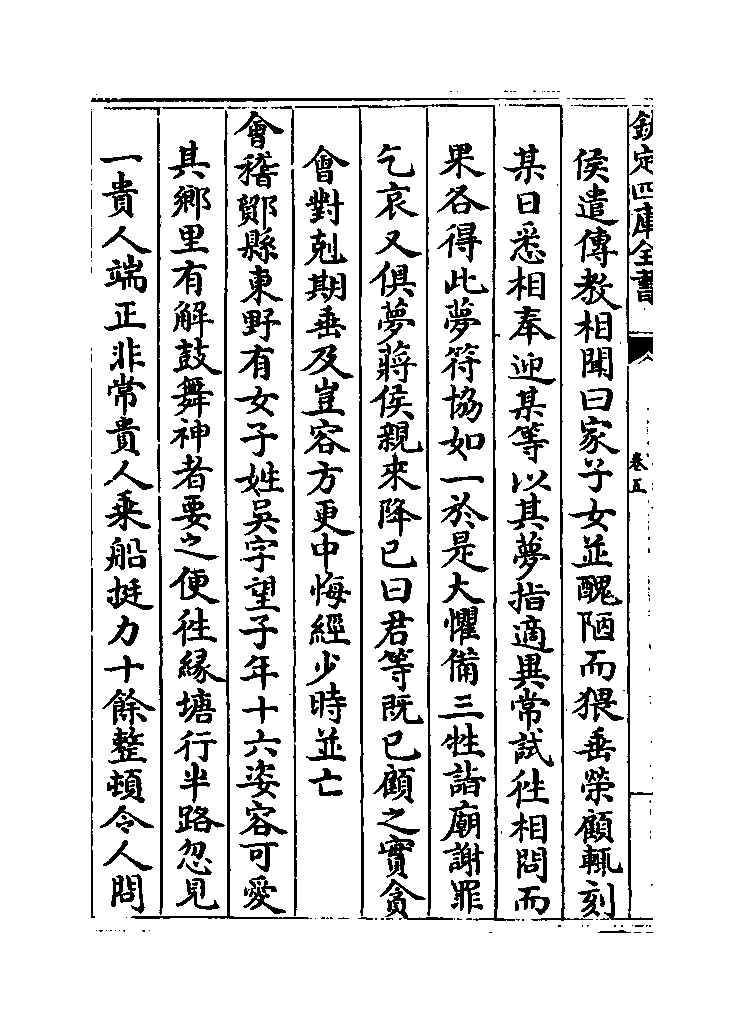 欽定四庫全書
卷五
侯遣傳教相聞曰家子女並醜陋而猥垂榮顧輒刻
某日悉相奉迎某等以其夢指適異常試徃相問而
果各得此夢符協如一於是大懼備三牲詣廟謝罪
乞哀又俱夢蔣侯親来降已曰君等既已顧之實貪
會對剋期垂及豈容方更中悔經少時並亡
會稽鄮縣東野有女子姓吳字望子年十六姿容可愛
其鄉里有解鼓舞神者要之便徃緣塘行半路忽見
一貴人端正非常貴人乗船挺力十餘整頓令人問